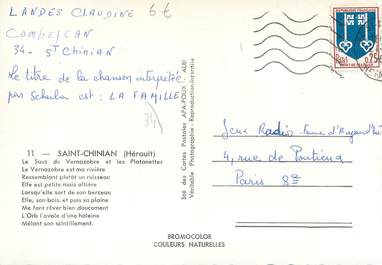 LANDES CLAUDINE 6€
COMBEJEAN
34 - ST Chinian
le titre de la chanson interprété
par Scheila est : LA FAMILLE
34
11 - SAINT-CHINIAN (Hérault)
Le Saut du Vernazobre et les Platanettes
Le Vernazobre est ma rivière
Ressemblant plutôt un ruisseau
Elle est petite mais altière
Lorsqu'elle sort de son berceau
Elle, son bois, et puis sa plaine
Me font rêver bien doucement
L'Orb l'avale d'une haleine
Mêlant son scintillement.
Sté des Cartes Postales APA-POUX - ALBI
Véritable Photographie - Reproduction interdite
BROMOCOLOR
COULEURS NATURELLES
REPUBLIQUE FRANCAISE
0,25
Jeux Radio
4, rue de
Paris 8e